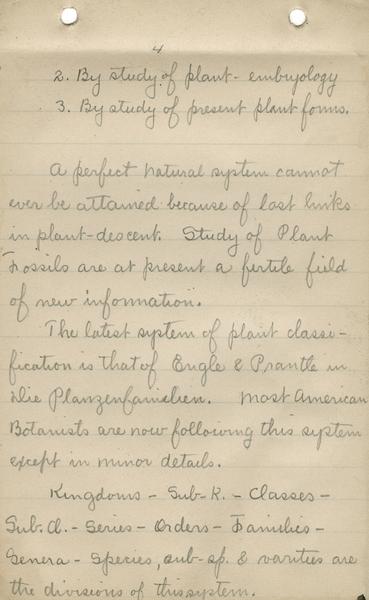 4
2. By study of plant-embryology
3. By study of present plant forms.
A perfect natural system cannot
ever be attained because of lost links
in plant-descent. Study of Plant
Fossils are at present a fertile field
of new information.
The latest system of plant classi-
fication is that of Engle & Prantle in
Die Planzenfamilien. Most American
Botanists are now following this system
except in minor details.
Kingdoms - Sub-K. - Classes -
Sub. Cl. - Series - Orders - Families -
Genera - Species, sub-sp. & varities are
the divisions of this system.